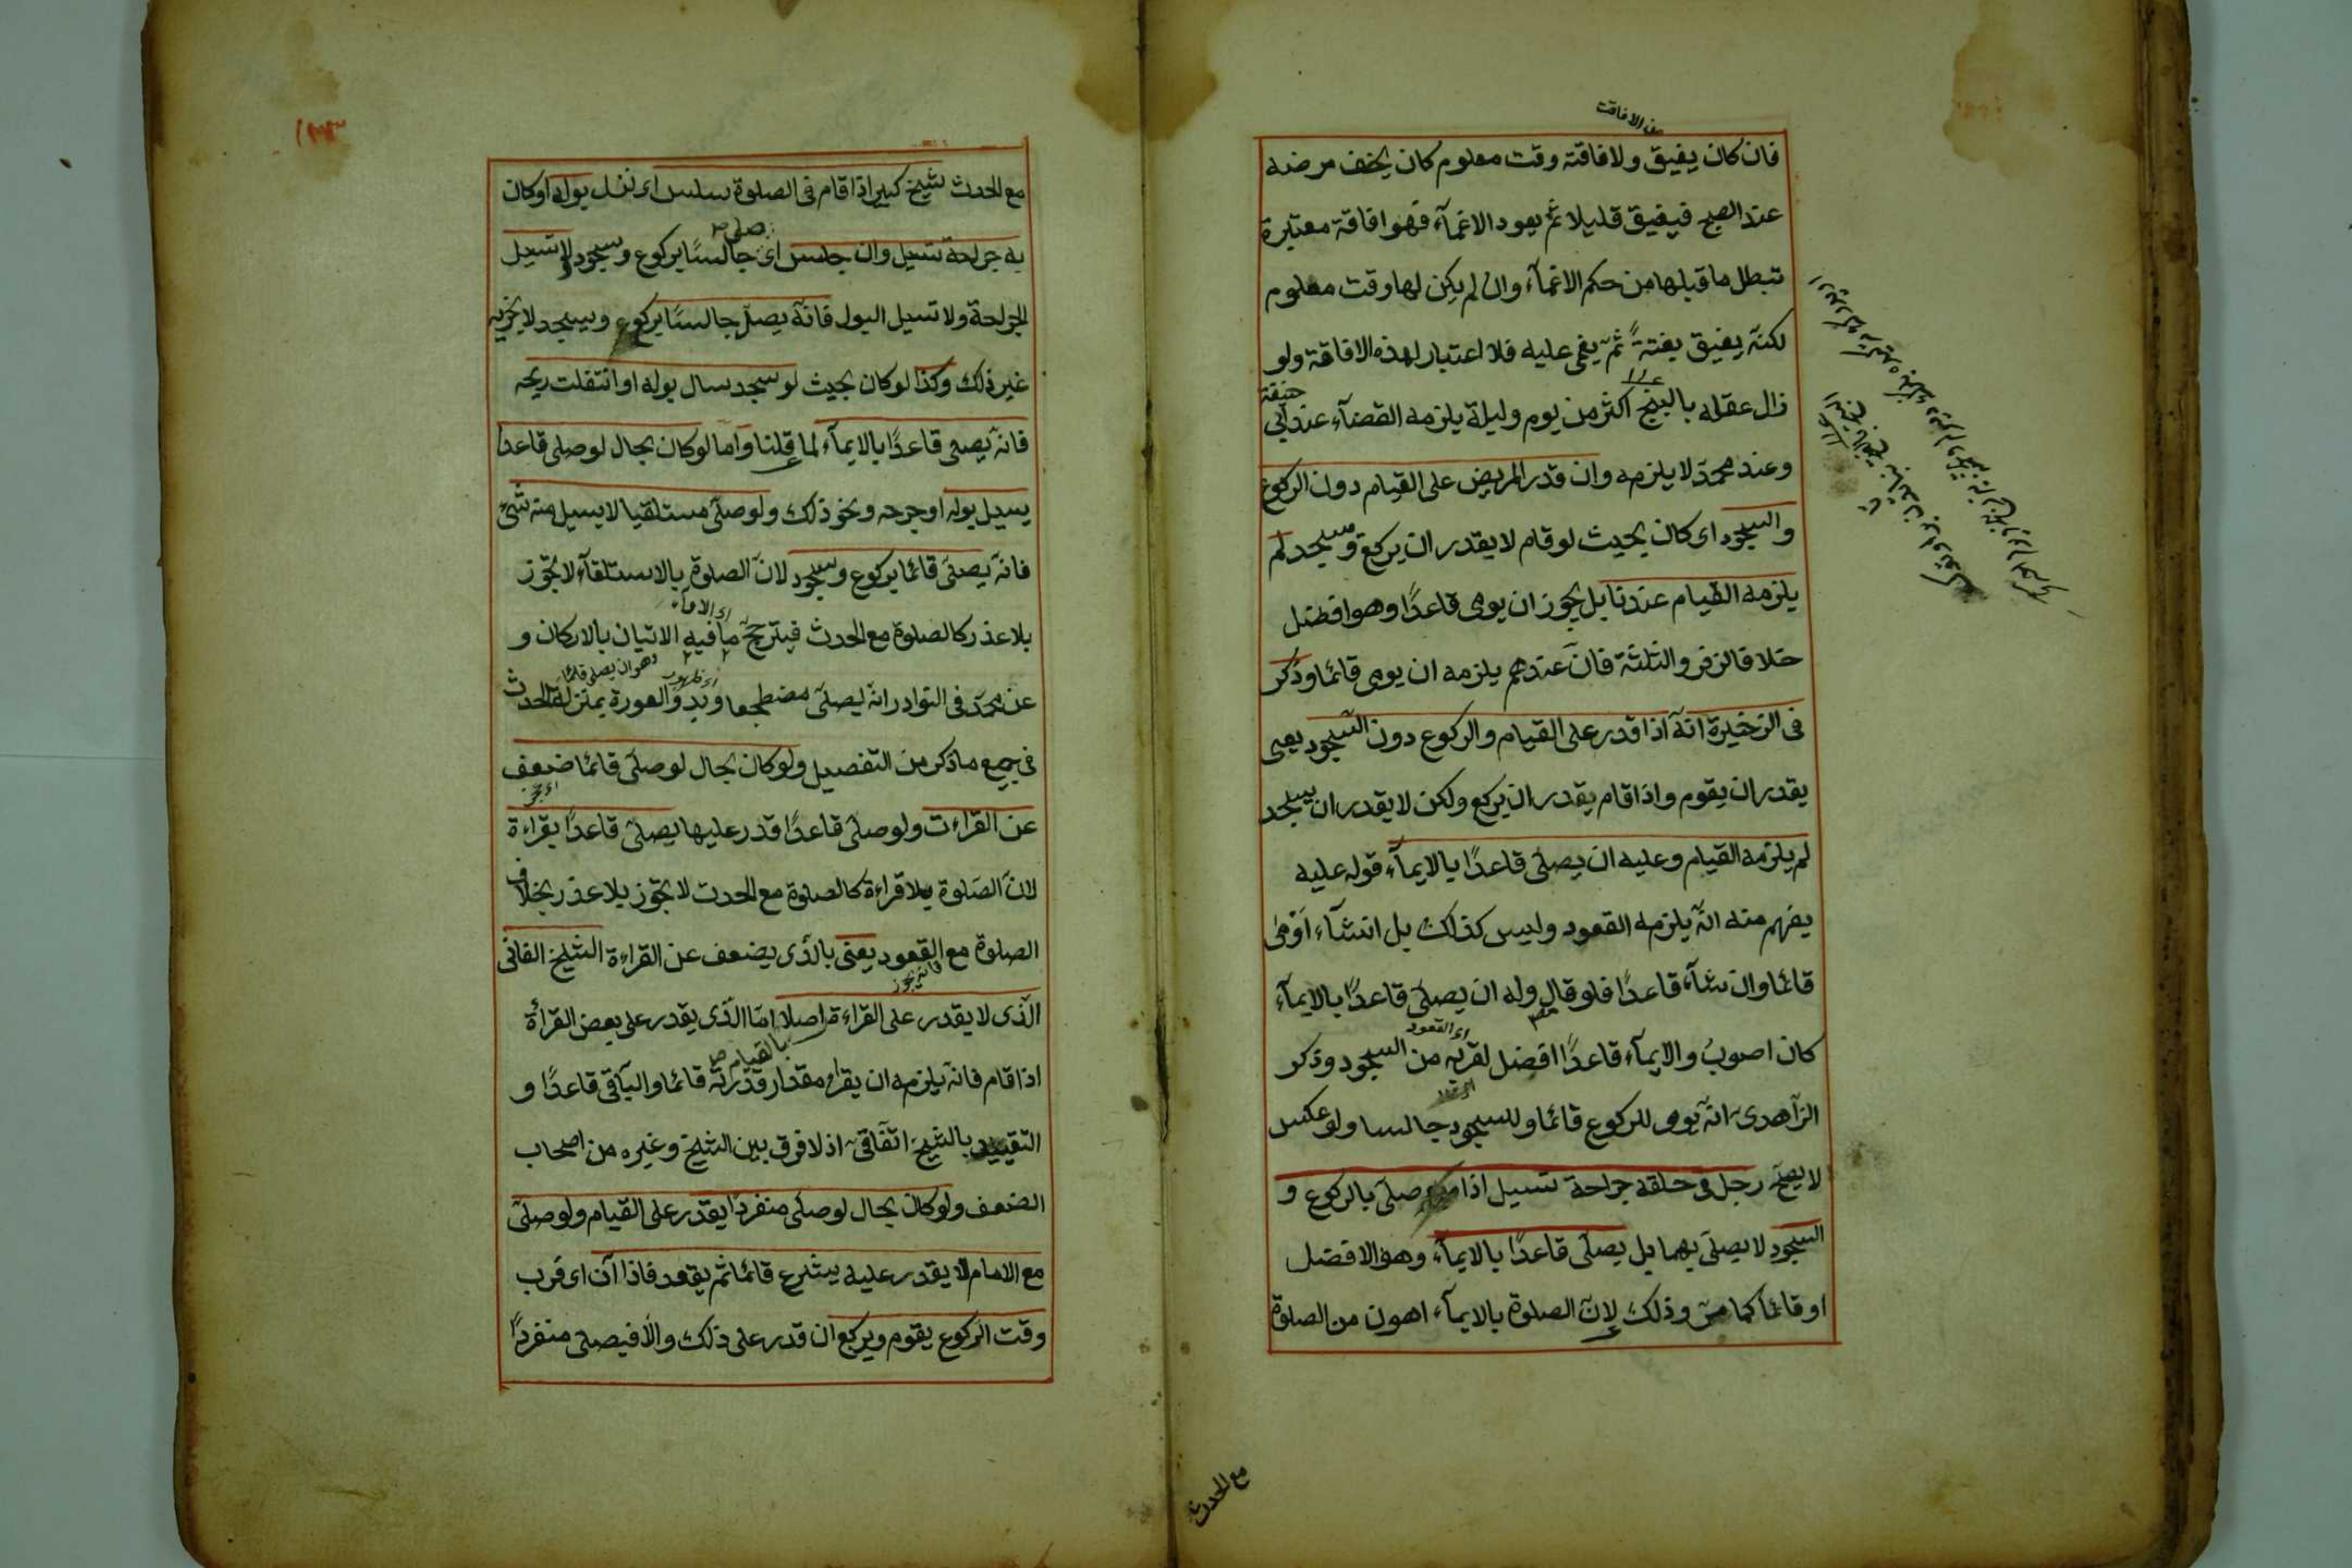 من الافاقت
فان كان يفيق ولافاقته وقت معلوم كان يخف مرضه
عند الصبح فيفيق قليلا ثم يعود الاغمآء فهو افاقة معتبرة
تبطل ما قبلها من حكم الاغمآء وان لم يكن لها وقت معلوم
لكنه يفيق بغتةً ثم يغمى عليه فلا اعتبار لهذه الافاقة ولو
زال عقله بالبنج اكثر من يوم وليلة يلزمه القضآء عند ابى حنيفة
وعند محمد لا يلزمه وان قدر المريض على القيام دون الركوع
والسجود اى كان بحيث لو قام لا يقدر ان يركع ويسجد لم
يلزمه القيام عندنا بل يجوز ان يومى قاعدًا وهو افضل
خلافا لزفر والثلثة فان عندهم يلزمه ان يومى قائما وذكر
فى الزخيرة انه اذا قدر على القيام والركوع دون السجود يعنى
يقدر ان يقوم واذا قام يقدر ان يركع ولكن لا يقدر ان يسجد
لم يلزمه القيام وعليه ان يصلى قاعدًا بالايمآء قوله عليه
يفهم منه انه يلزمه القعود وليس كذلك بل ان شآء اومى
قائما وان شآء قاعدًا فلو قال وله ان يصلى قاعدًا بالايمآء
اى القعود
كان اصوب والايمآء قاعدًا افضل لقربه من السجود وذكر
الزاهدى انه يومى للركوع قائما وللسجود جالسا ولو عكس
لا يصح رجل فى حلقه جراحة تسيل اذا صلى بالركوع و
السجود لا يصلى بهما بل يصلى قاعدًا بالايمآء وهو الافضل
او قائما كما مر وذلك لان الصلوة بالايمآء اهون من الصلوة
مع الحدث
١٣٣
مع الحدث شيخ كبير اذا قام فى الصلوة سلس اى نزل بوله او كان
به جراحة تسيل وان جلس اى جالسًا بركوع وسجود لا تسيل
الجراحة ولا تسيل البول فانه يصلى جالسًا بركوع ويسجد لا يجزيه
غير ذلك وكذا لو كان بحيث لو سجد سال بوله او انتفلت ريحه
فانه يصلى قاعدًا بالايمآء لما قلنا واما لو كان بحال لو صلى قاعدا
يسيل بوله او جرحه ونحو ذلك ولو صلى مستلقيا لا يسيل منه شئ
فانه يصلى قائما بركوع وسجود لان الصلوة بالاستلقآء لا تجوز
بلا عذر كالصلوة مع الحدث فيترجح ما فيه الاتيان بالاركان و
وهو ان يصلى قائما
عن محمد فى النوادر انه يصلى مضطجعا وبدو العورة بمنزلة الحدث
فى جميع ما ذكر من التفصيل ولو كان بحال لو صلى قائما ضعف
اى عجز
عن القراءت ولو صلى قاعدًا قدر عليها يصلى قاعدًا بقراءة
لان الصلوة بلا قراءة كالصلوة مع الحدث لا تجوز بلا عذر بخلاف
الصلوة مع القعود يعنى بالذى يضعف عن القراءة الشيخ الفانى
فانه يجوز
الذى لا يقدر على القراءة اصلا اما الذى يقدر على بعض القرأة
بالقيام
اذا قام فانه يلزمه ان يقرا مقدار قدرته قائما والباقى قاعدًا و
التقييد بالشيخ اتفاقى اذ لا فرق بين الشيخ وغيره من اصحاب
الضعف ولو كان بحال لو صلى منفردًا يقدر على القيام ولو صلى
مع الامام لا يقدر عليه يشرع قائما ثم يقعد فاذا آن اى قرب
وقت الركوع يقوم ويركع ان قدر على ذلك والا فيصلى منفردًا